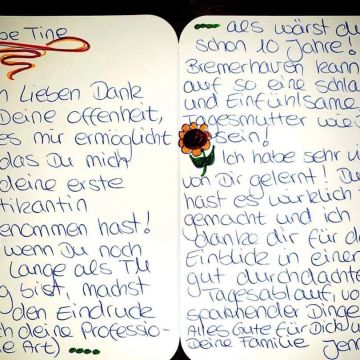 be Tine
n Lieben Dank
Deine Offenheit,
es mir ermöglicht
das Du mich
deine erste
tikantin
enommen hast!
wenn Du noch
Lange als TM
g bist, machst
den Eindruck
ch deine Professio-
e Art)
als wärst du
schon 10 Jahre!
Bremerhaven kann
auf so eine schla
und Einfühlsame
agesmutter wie D
sein!
Ich habe sehr v
von Dir gelernt! Du
hast es wirklich
gemacht und ich
danke dir für de
Einblick in einen
gut durchdachte
Tagesablauf, vo
spannender Dinge
Alles Gute für Dich u
Deine Familie Jen